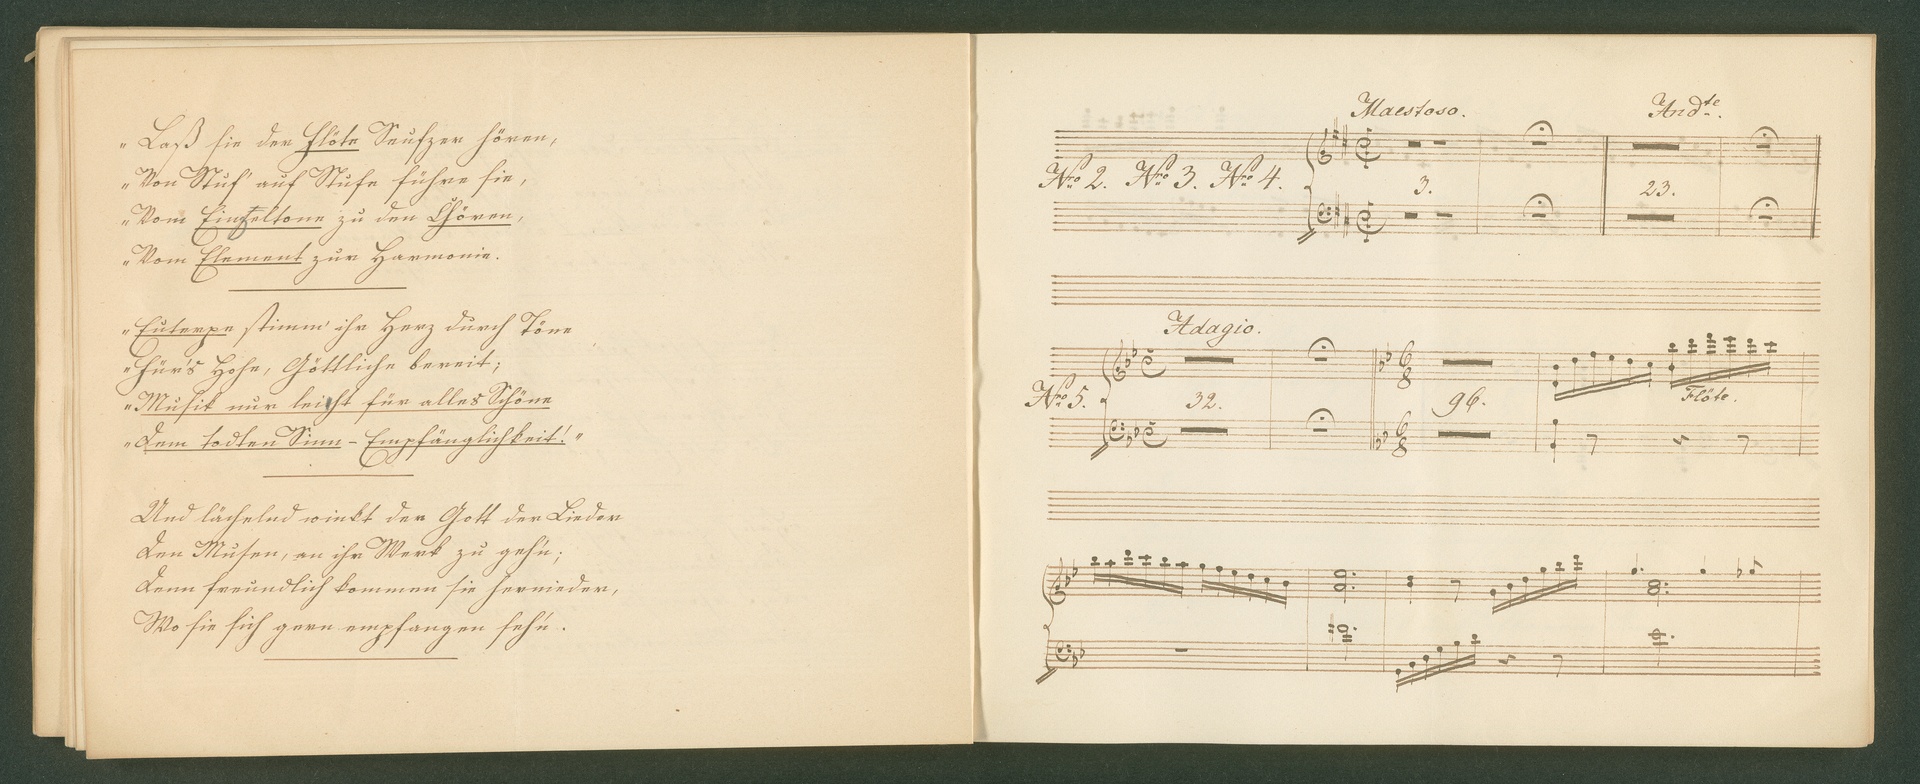 „Laß sie der Flöte Seufzer hören,
„Von Stuf' auf Stufe führe sie,
„Vom Einzeltone zu den Chören,
„Vom Element zur Harmonie.
„Euterpe stimm' ihr Herz durch Töne
„Für's Hohe, Göttliche bereit;
„Musik nur leiht für alles Schöne
„Dem todten Sinn – Empfänglichkeit!"
Und lächelnd winkt der Gott der Lieder
Den Musen, an ihr Werk zu geh'n;
Denn freundlich kommen sie hernieder,
Wo sie sich gern empfangen seh'n.
Maestoso. Andte.
Nro 2. Nro 3. Nro 4. 3. 23.
Adagio.
Nro 5. 32. 96. Flöte.